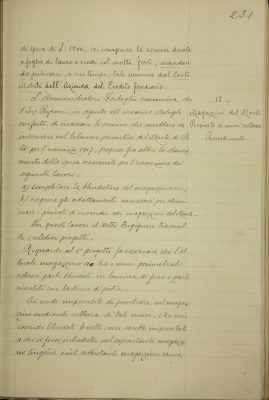 231
di spesa di L. 1700, in compreso la cornice dorata
a foglie di lauro e sede col motto Fert, mandan-
dosi pulire, a suo tempo, tale somma dal Conto
Mobili dell'Azienda del Credito fondiario.
L'Amministratore Forboglio comunica che
l'Ing. Peyron, in seguito all'incarico statogli
conferito di indicare le somme che sarebbero da
inscrivere nel bilancio preventivo del Monte di Pie-
tà per l'esercizio 1907, propose fra altro lo stanzia-
mento della somma occorrente per l'esecuzione dei
seguenti lavori:
a) completare la blindatura del magazzino oro;
b) eseguire gli adattamenti necessari per elimi-
nare i pericoli d'incendio nei magazzini del Monte.
Per questi lavori il detto Ingegnere trasmet-
te i relativi progetti.
Riguardo al 1º progetto fa osservare che l'at-
tuale magazzino oro ha i muri perimetrali
esterni parte blindati in lamiera di ferro e parte
rivestiti con lastroni di pietra.
Così rende impossibile di penetrare nel magaz-
zino mediante rottura di tali muri. Ma non
essendo blindate le volte, non sarebbe impossibile
a chi si fosse introdotto nel soprastante magazzi-
no lingerie e nel sottostante magazzino rame,
12
Magazzini del Monte
Proposta di nuovi
Provvedimenti